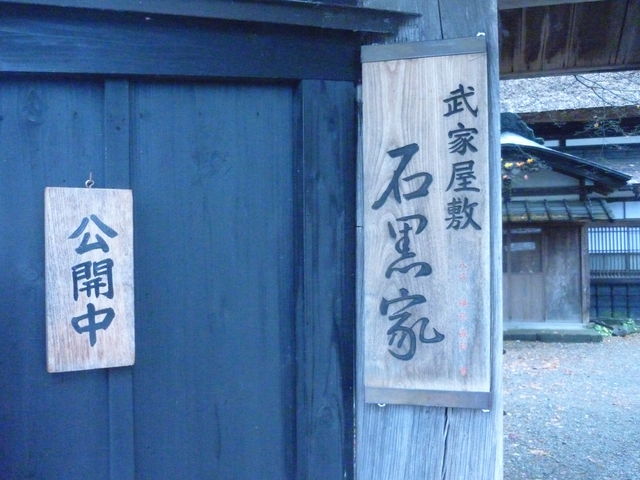 武家屋敷
石黒家
公開中